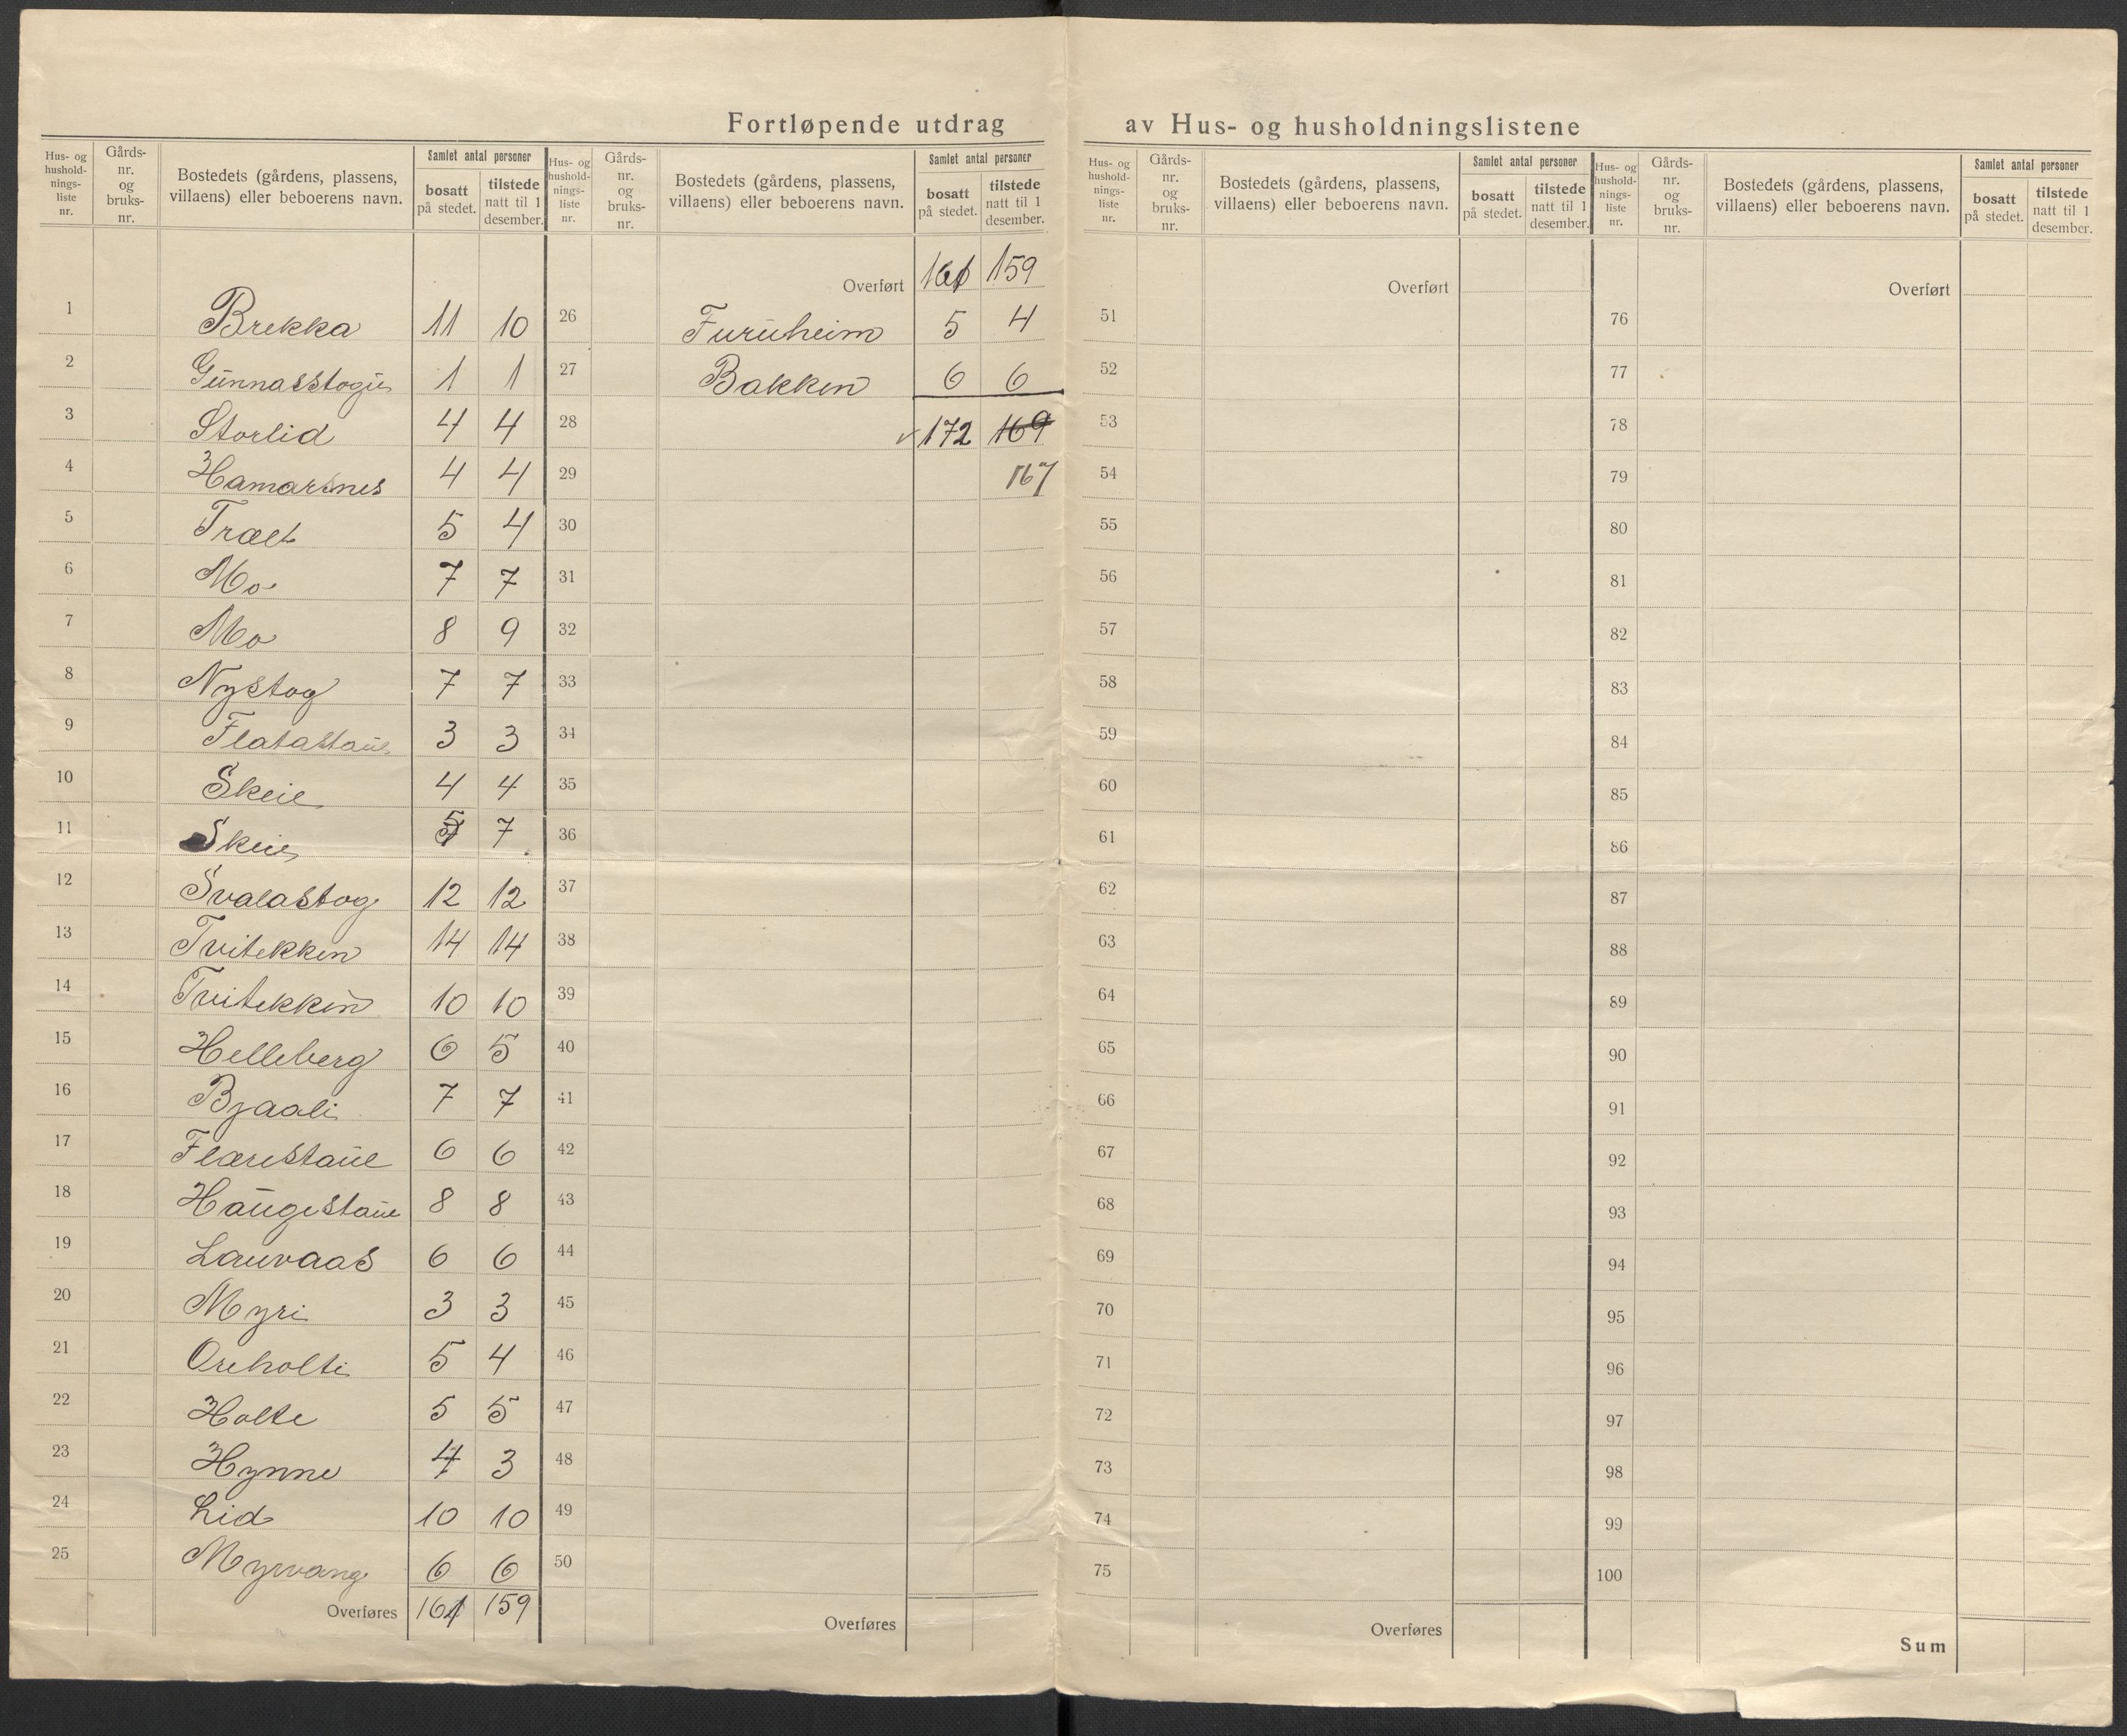 Fortløpende utdrag av Hus- og husholdningslistene
Hus- og hushold-nings-liste nr. | Gårds-nr. og bruks-nr. | Bostedets (gårdens, plassens, villaens) eller beboerens navn. | Samlet antal personer | bosatt på stedet. | tilstede natt til 1 desember.
1 Brekka 11 10
2 Gunnasstogu 1 1
3 Storlid 4 4
4 Hamarsnes 4 4
5 Træet 5 4
6 Mo 7 7
7 Mo 8 9
8 Nystog 7 7
9 Flatastaul 3 3
10 Skeie 4 4
11 Skeie 5 7
12 Svalastog 12 12
13 Tvitekken 14 14
14 Tvitekken 10 10
15 Helleberg 6 5
16 Bjaali 7 7
17 Flærestaul 6 6
18 Haugestaul 8 8
19 Lauvaas 6 6
20 Myri 3 3
21 Oreholti 5 4
22 Holte 5 5
23 Hynne 4 3
24 Lid 10 10
25 Myrvang 6 6
Overføres 161 159
Hus- og hushold-nings-liste nr. | Gårds-nr. og bruks-nr. | Bostedets (gårdens, plassens, villaens) eller beboerens navn. | Samlet antal personer | bosatt på stedet. | tilstede natt til 1 desember.
Overført 161 159
26 Furuheim 5 4
27 Bakken 6 6
28 172 169
29 167
30
31
32
33
34
35
36
37
38
39
40
41
42
43
44
45
46
47
48
49
50
Overføres
Hus- og hushold-nings-liste nr. | Gårds-nr. og bruks-nr. | Bostedets (gårdens, plassens, villaens) eller beboerens navn. | Samlet antal personer | bosatt på stedet. | tilstede natt til 1 desember.
Overført
51
52
53
54
55
56
57
58
59
60
61
62
63
64
65
66
67
68
69
70
71
72
73
74
75
Overføres
Hus- og hushold-nings-liste nr. | Gårds-nr. og bruks-nr. | Bostedets (gårdens, plassens, villaens) eller beboerens navn. | Samlet antal personer | bosatt på stedet. | tilstede natt til 1 desember.
Overført
76
77
78
79
80
81
82
83
84
85
86
87
88
89
90
91
92
93
94
95
96
97
98
99
100
Sum